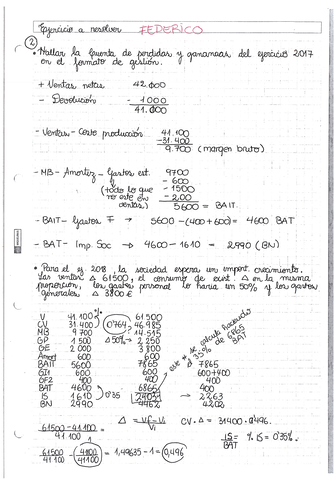 Ejercicio a resolver FEDERICO
②
• Hallar la cuenta de perdidas y ganancias del ejercicio 2017
en el formato de gestión.
+ Ventas netas 42.000
- Devolución - 1000
41.000
- Ventas - Coste producción 41.100
- 31.400
9.700 (margen bruto)
- MB - Amortiz - Gastos est. 9700
- 600
(todo lo que - 1500
no esté en - 2.00
ventas) 5600 = BAIT.
- BAIT - Gastos F → 5600 - (400+600) = 4600 BAT
- BAT - Imp. Soc → 4600 - 1610 = 2990 (BN)
• Para el ej. 2018, la sociedad espera un import. crecimiento.
Las ventas Δ 61500, el consumo de exist. Δ en la misma
proporcion, los gastos personal lo haria un 50% y los gastos
generales. Δ 3800 €
V 41.100 61.500
CV 31.400 0'764 46.985
MB 9.700 14.515
GP 1.500 Δ50% → 2.250
GE 2.000 3.800
Amort 600 600
BAIT 5600 7865 7865
GF1 600 600 600+400
GF2 400 400 400
BAT 4600 6865
IS 1.610 0'35 → 2263
BN 2990 4462 4202
61500-41100 Δ = Vf-Vi CV.Δ = 31400.0'496.
41.100 Vi
IS = % IS = 0'35%.
BAT
61500 - 41100 = 1,49635 - 1 = 0,496
41100 41100